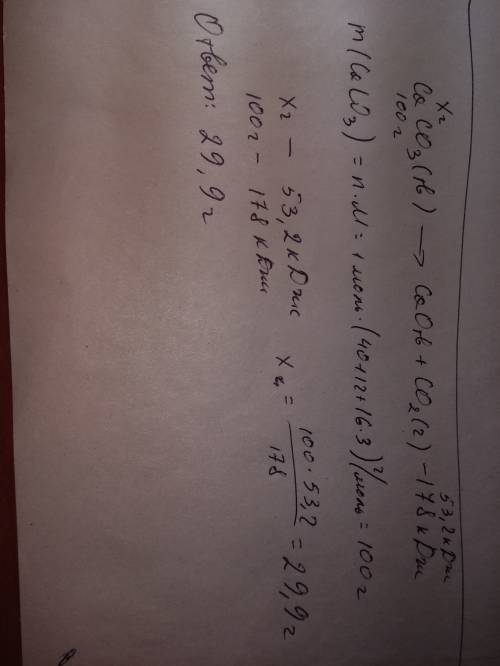 хг 53,2 кДж
CaCO₃(тв) → CaOтв + CO₂(г) - 178 кДж
100г
m(CaCO₃) = n·M = 1 моль·(40+12+16·3) г/моль = 100г
Xг – 53,2 кДж
100г – 178 кДж
X = 100·53,2 / 178 = 29,9г
Ответ: 29,9г